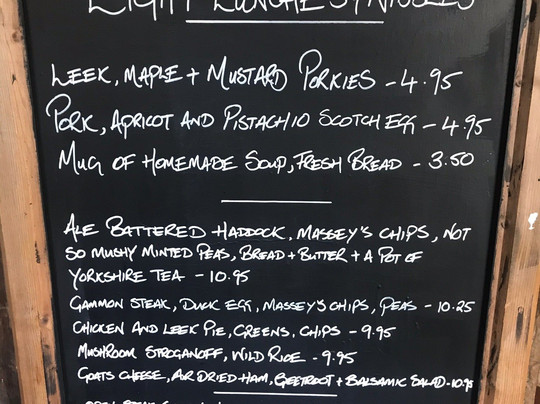 LIGHT LUNCHES + NIBBLES
LEEK, MAPLE + MUSTARD PORKIES - 4.95
PORK, APRICOT AND PISTACHIO SCOTCH EGG - 4.95
MUG OF HOMEMADE SOUP, FRESH BREAD - 3.50
ALE BATTERED HADDOCK, MASSEY'S CHIPS, NOT
SO MUSHY MINTED PEAS, BREAD + BUTTER + A POT OF
YORKSHIRE TEA - 10.95
GAMMON STEAK, DUCK EGG, MASSEY'S CHIPS, PEAS - 10.25
CHICKEN AND LEEK PIE, GREENS, CHIPS - 9.95
MUSHROOM STROGANOFF, WILD RICE - 9.95
GOATS CHEESE, AIR DRIED HAM, BEETROOT + BALSAMIC SALAD - 10.95